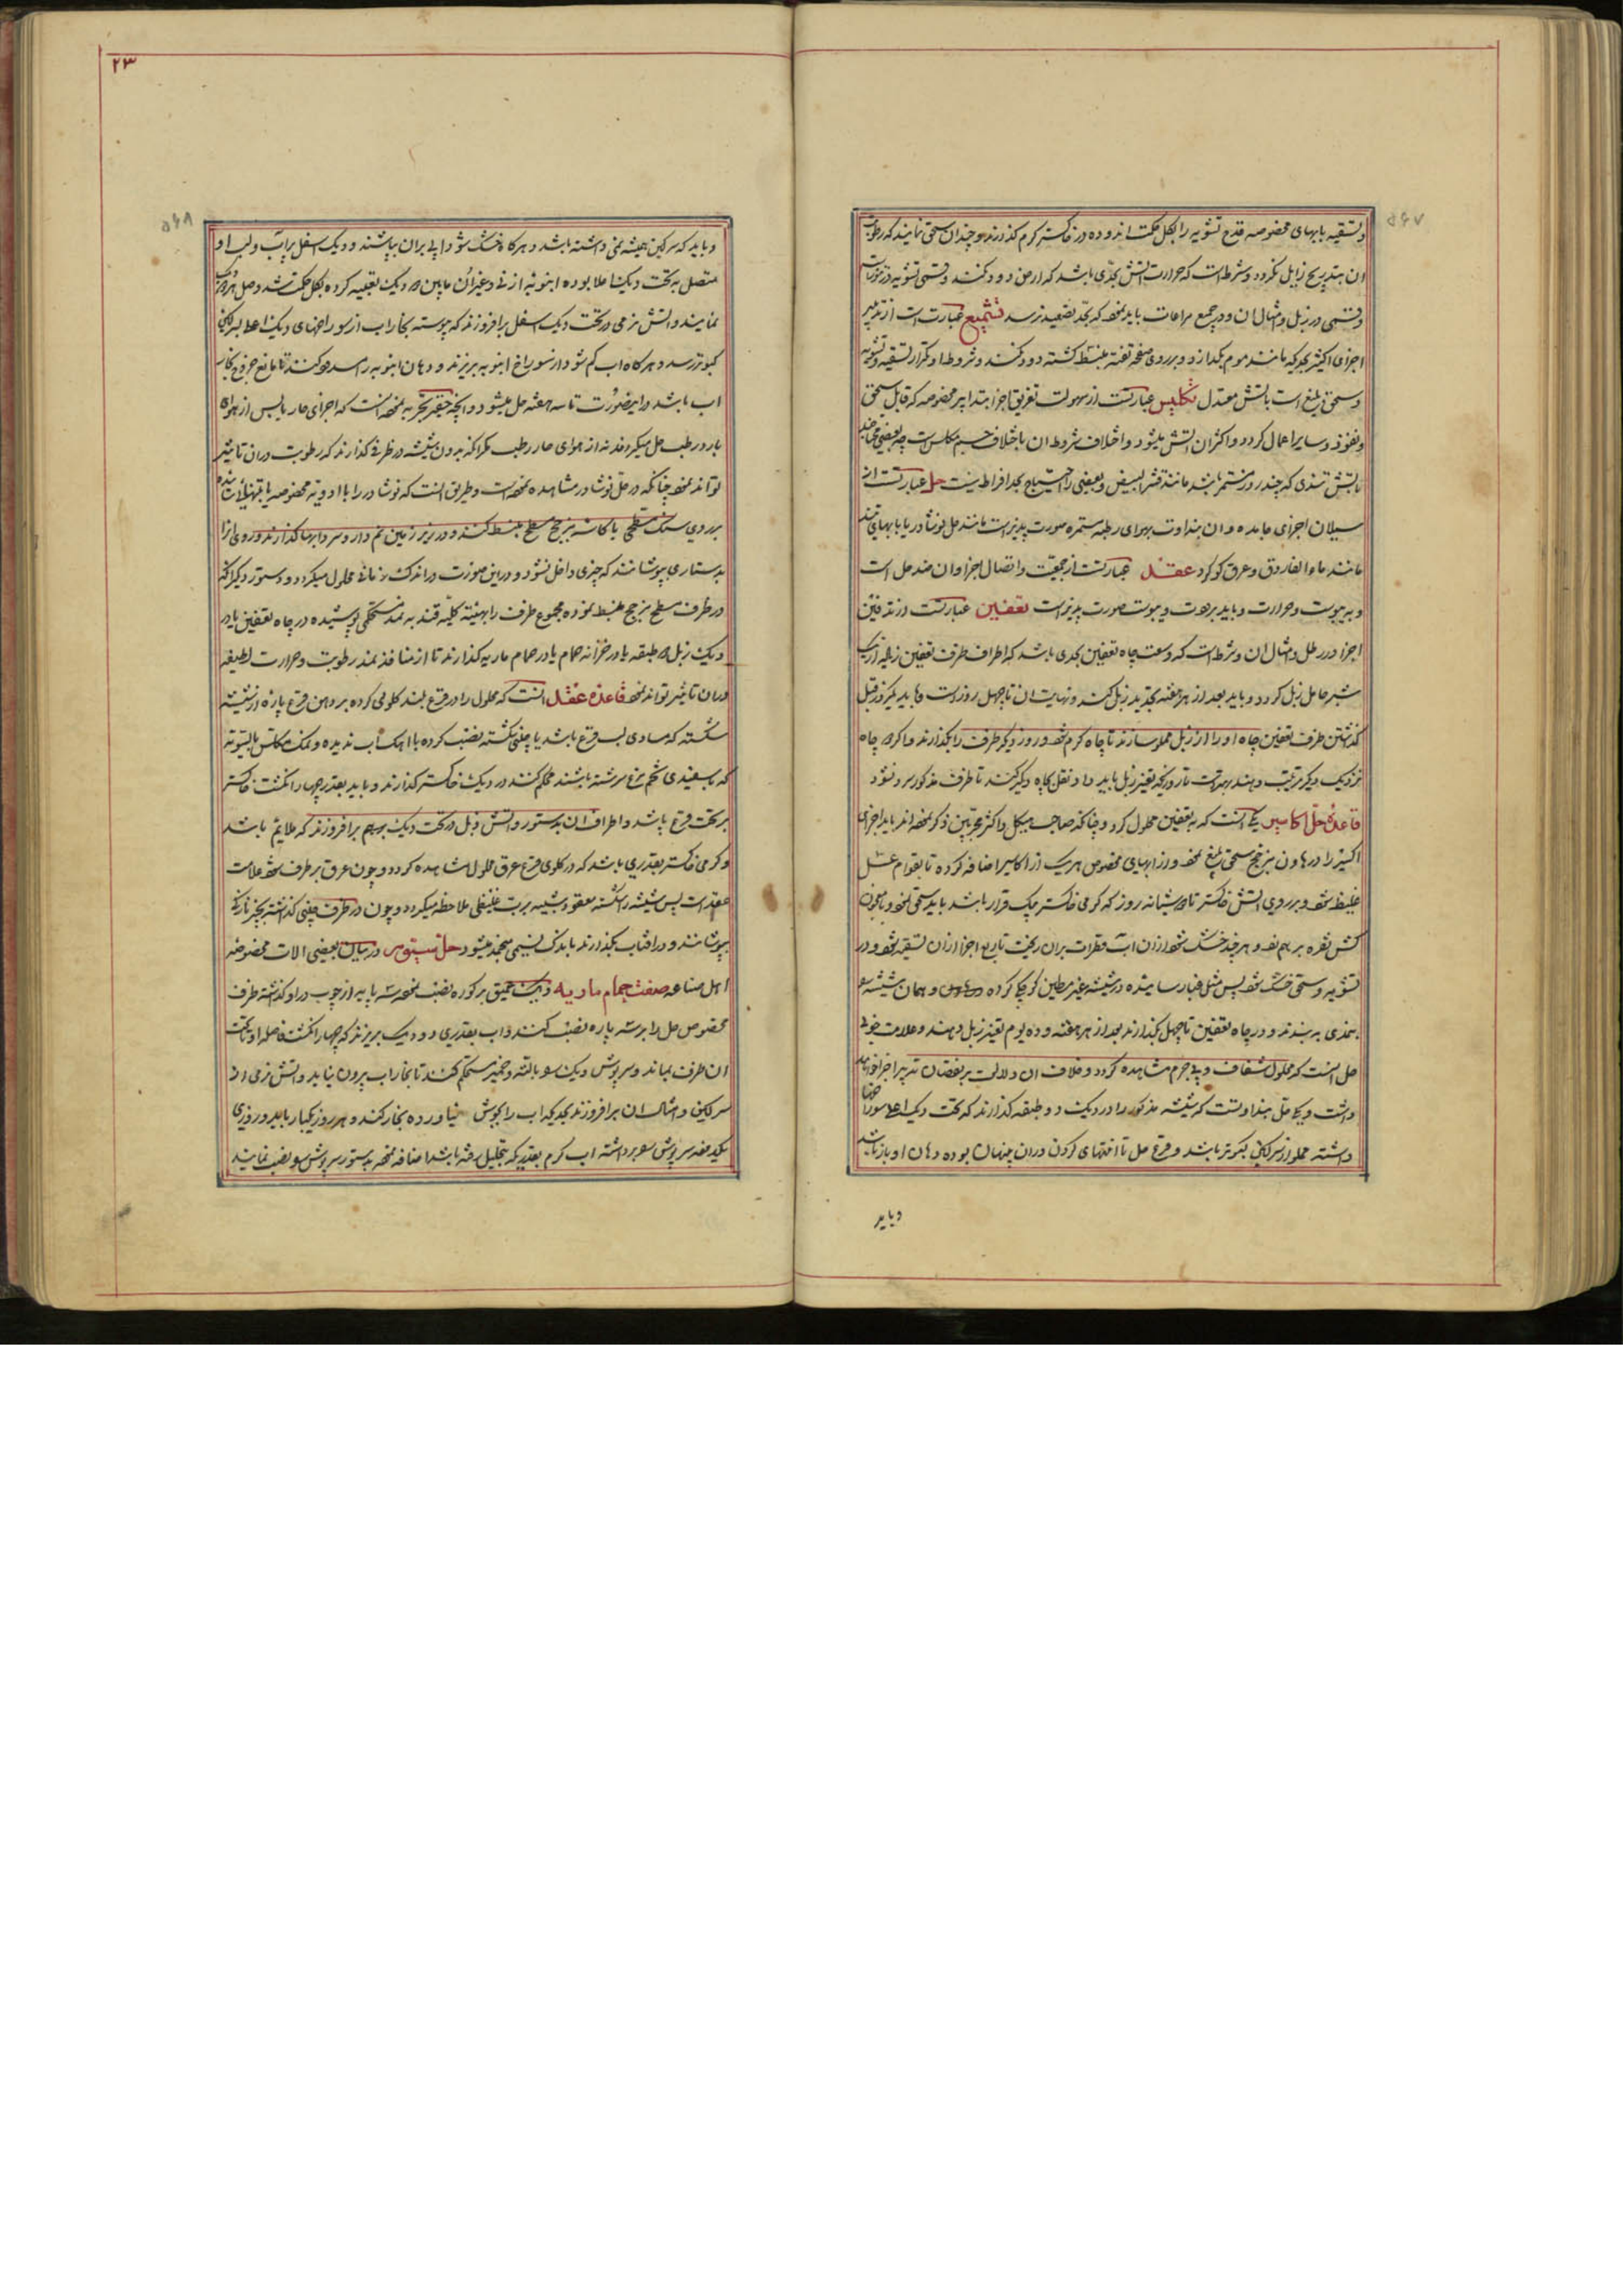 وتسقیه بابهای مخصوصه قدح تشویه را بکل حکمت اندوده در خاکستر کرم کذارند و چندان سحق نمایند که رطوبت
ان بتدریج زایل نکردد وشرط است که حرارت اتش بحدی باشد که ارض دود نکند وقسمی تشویه در تنورات
وقسمی در زبل وامثال ان ودر جمیع مراعات باید نمود که بحد تصعید نرسد تشمیع عبارت است از تدبیر
اجزای اکسیر بحدیکه مانند موم بکدازد وبر روی صفحه تفته منبسط کشته دود نکند وشروط او تکرار تسقیه وتشویه
وسحق بلیغ است باتش معتدل تکلیس عبارتست از سهولت تفریق اجزا بتدابیر مخصوصه که قابل سحق
ونفوذ وسایر اعمال کردد واکثر ان باتش میشود واختلاف شروط ان باختلاف جسم مکلس است چه بعضی محتاجند
باتش تندی که چند روز مستمر باشد مانند قشر البیض وبعضی را احتیاج بحد افراط نیست حل عبارتست از
سیلان اجزای جامده وان بنداوت بهوای رطبه مستمره صورت پذیر است مانند حل نوشادر یا بابهای تند
مانند ماء الفاروق وعرق کوکرد عقد عبارتست از جمعیت واتصال اجزا وان ضد حل است
وبه یبوست وحرارت وباید برودت ویبوست صورت پذیر است تعفین عبارتست از تدفین
اجزا در رطل وامثال ان وشرط است که وسعت چاه تعفین بحدی باشد که اطراف ظرف تعفین زباله از یک
شبر حامل زبل کردد وباید بعد از هر هفته تجدید زبل کنند ونهایت ان تا چهل روز است وباید یکروز قبل
کذاشتن ظرف تعفین چاه او را از زبل مملو سازند تا چاه کرم شود وروز دیکر ظرف را بکذارند واکر دو چاه
نزدیک دیکر ترتیب دهند بهتر است تا روزیکه تغییر زبل باید داد نقل بچاه دیکر کنند تا ظرف مذکور سرد نشود
قاعدهٔ حل اکاسیر یکی انست که به تعفین محلول کردد چنانکه صاحب هیکل واکثر مجربین ذکر نموده اند باید اجزای
اکسیر را در هاون بزجاج سحق بلیغ نمود واز ابهای مخصوص هریک از اکاسیر اضافه کرده تا بقوام عسل
غلیظ شود وبر روی اتش خاکستر تا دو شبانه روز که کرمی خاکستر یک قرار باشد باید سحق نمود وبا هاون
کش نقره بر هم نمود وهرچند خشک شود از ان اب قطرات بران ریخت تا ربع اجزا از ان تسقیه شود ودر
تشویه وسحق خشک شود پس مثل غبار ساییده در شیشه غیر مطین کوچک کرده ودهن همان شیشه را
بنمدی به بندند ودر چاه تعفین تا چهل بکذارند بعد از هر هفته وده یوم تغییر زبل دهند وعلامت خوبی
حل انست که محلول شفاف وبی جرم مشاهده کردد وخلاف ان دلالت بر نقصان تدبیر اجزا خواهد
داشت ویکی حل بنداوتست که شیشه مذکور را در دیک دو طبقه کذارند که تحت دیک اعلی سوراخها
داشته مملو از سرکین کبوتر باشد وقرع حل تا انتهای کردن دران پنهان بوده دهان او باز باشد
وباید
۲۳
وباید که سرکین همیشه نمی داشته باشد وهرکاه خشک شود ابی بران بپاشند ودیک اسفل پر اب ولب او
متصل به تحت دیک اعلا بوده انبوبه از نی وغیر ان مابین دو دیک تعبیه کرده بکل حکمت شد وصل هر دو
نمایند واتش نرمی در تحت دیک اسفل برافروزند که پیوسته بخار اب از سوراخهای دیک اعلا بسرکین
کبوتر رسد وهرکاه اب کم شود از سوراخ انبوبه بریزند ودهان انبوبه را مسدود کنند تا مانع خروج بخار
اب باشد ودرین صورت تا سه هفته حل میشود وانچه حقیر تجربه نموده انست که اجزای حار یابس از هوای
بارد رطب حل میکردد نه از هوای حار رطب مکر انکه بدون شیشه در ظرفی کذارند که رطوبت دران تاثیر
تواند نمود چنانکه در حل نوشادر مشاهده نموده است وطریق انست که نوشادر را با ادویه مخصوصه
بر روی سنک سطحی یا کاسه بزجج مسطح منبسط کنند ودر زیر زمین نم دار وسردابها کذارند وروی انرا
بدستاری بپوشانند که چیزی داخل نشود ودرین صورت در اندک زمانی محلول میکردد ودستور دیکر انکه
در ظرف مسطح بزجج منبسط نموده مجموع ظرف را بهیئت کلیه قند به نمد مستحکمی پوشیده در چاه تعفین یا در
دیک زبل دو طبقه یا در خزانه حمام یا در حمام ماریه کذارند تا از منافذ نمد رطوبت وحرارت لطیفه
دران تاثیر تواند نمود قاعدهٔ عقد انست که محلول را در قرع بلند کلوئی کرده بر دهن قرع پاره از شیشه
شکسته که مساوی لب قرع باشد یا چینی شکسته نصب کرده با اهک اب ندیده ونمک مکلس بالسویه
که بسفیدی تخم مرغ سرشته باشند محکم کنند در دیک خاکستر کذارند وباید بقدر چهار انکشت خاکستر
بر تحت قرع باشد واطراف ان بدستور واتش زبل در تحت دیک برافروزند که ملایم باشد
وکرمی خاکستر بقدری باشد که در کلوی قرع عرق محلول مشاهده کردد وچون عرق بر طرف شود علامت
عقد است پس شیشه را شکسته معقود شبیه برب غلیظی ملاحظه میکردد وچون در ظرف چینی کذاشته بچیز نازکی
بپوشانند ودر افتاب بکذارند باندک نسیمی منجمد میشود در بیان بعضی الات مخصوصه
اهل صناعه صفت حمام ماریه دیک عمیق بر کوره نصب نموده سه پایه از چوب در او کذاشته ظرف
مخصوص حل را بر سه پایه نصب کنند واب بقدری در دیک بریزند که چهار انکشت فاصله او تا تحت
ان ظرف بماند وسرپوش دیک را بالته وخمیر مستحکم کنند تا بخار اب بیرون نیاید واتش نرمی از
سرکین وامثال ان برافروزند بحدیکه اب را بجوش نیاورده بخار کند وهر روز یکبار یا بدو روزی
یکدفعه سرپوش را برداشته اب کرم بقدریکه بتحلیل رفته باشد اضافه نموده بدستور سرپوش را نصب نمایند